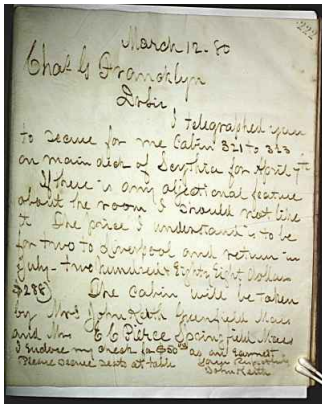 222
March 12-80
Chas G Francklyn
Dr Sir
I telegraphed you
to secure for me Cabin 321 to 323
on main deck of Scythia for April 7th
If there is any objectional feature
about the room I should not like
it The price I understand is to be
for two to Liverpool and return in
July - two hundred Eighty Eight dollars
$288) The cabin will be taken
by Mrs John Keith Greenfield Mass
and Mrs E C Pierce Springfield Mass
I enclose my check for $50 as an earnest
Please secure seats at table Yours Respectfully
John Keith